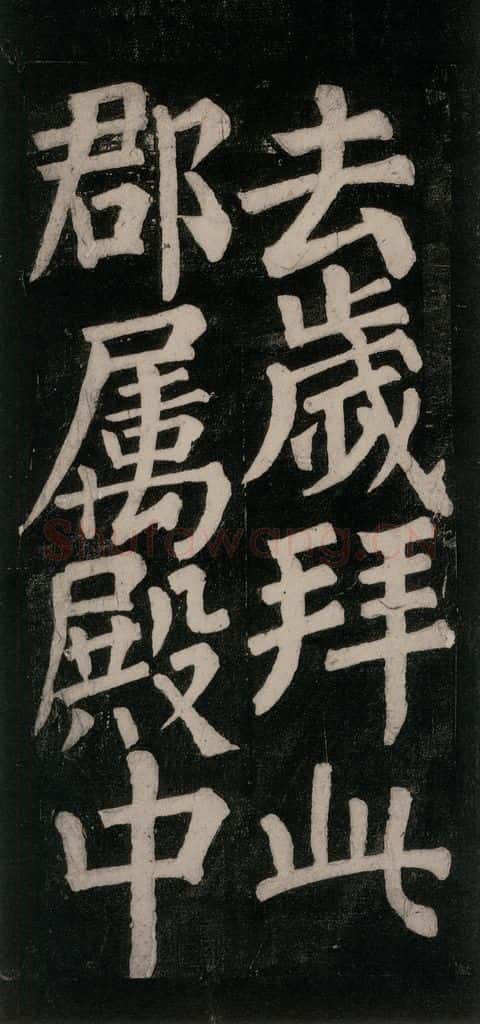 去歲拜此
郡属殿中
Shufawang.CN